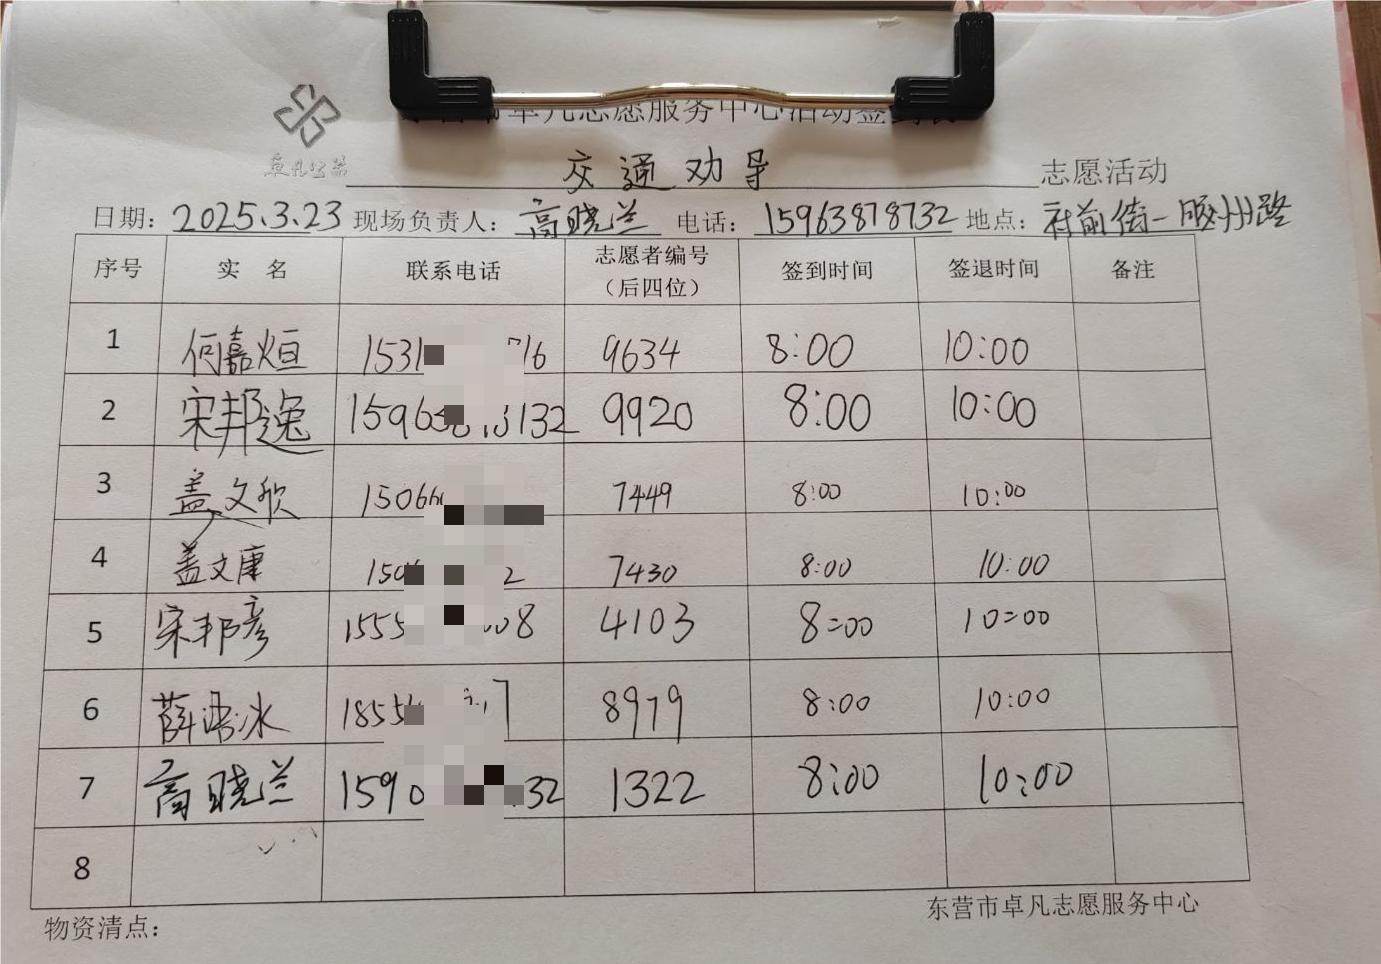 卓凡公益
东营市卓凡志愿服务中心活动签到表
交通劝导 志愿活动
日期：2025.3.23 现场负责人：高晓兰 电话：15963878732 地点：府前街一胶州路
序号 实 名 联系电话 志愿者编号（后四位） 签到时间 签退时间 备注
1 何嘉烜 1531 76 9634 8:00 10:00
2 宋邦逸 1596 3132 9920 8:00 10:00
3 盖文欣 1506 7449 8:00 10:00
4 盖文康 150 2 7430 8:00 10:00
5 宋邦彦 1555 8 4103 8:00 10:00
6 薛 冰 1855 7 8979 8:00 10:00
7 高晓兰 159 32 1322 8:00 10:00
8
物资清点： 东营市卓凡志愿服务中心